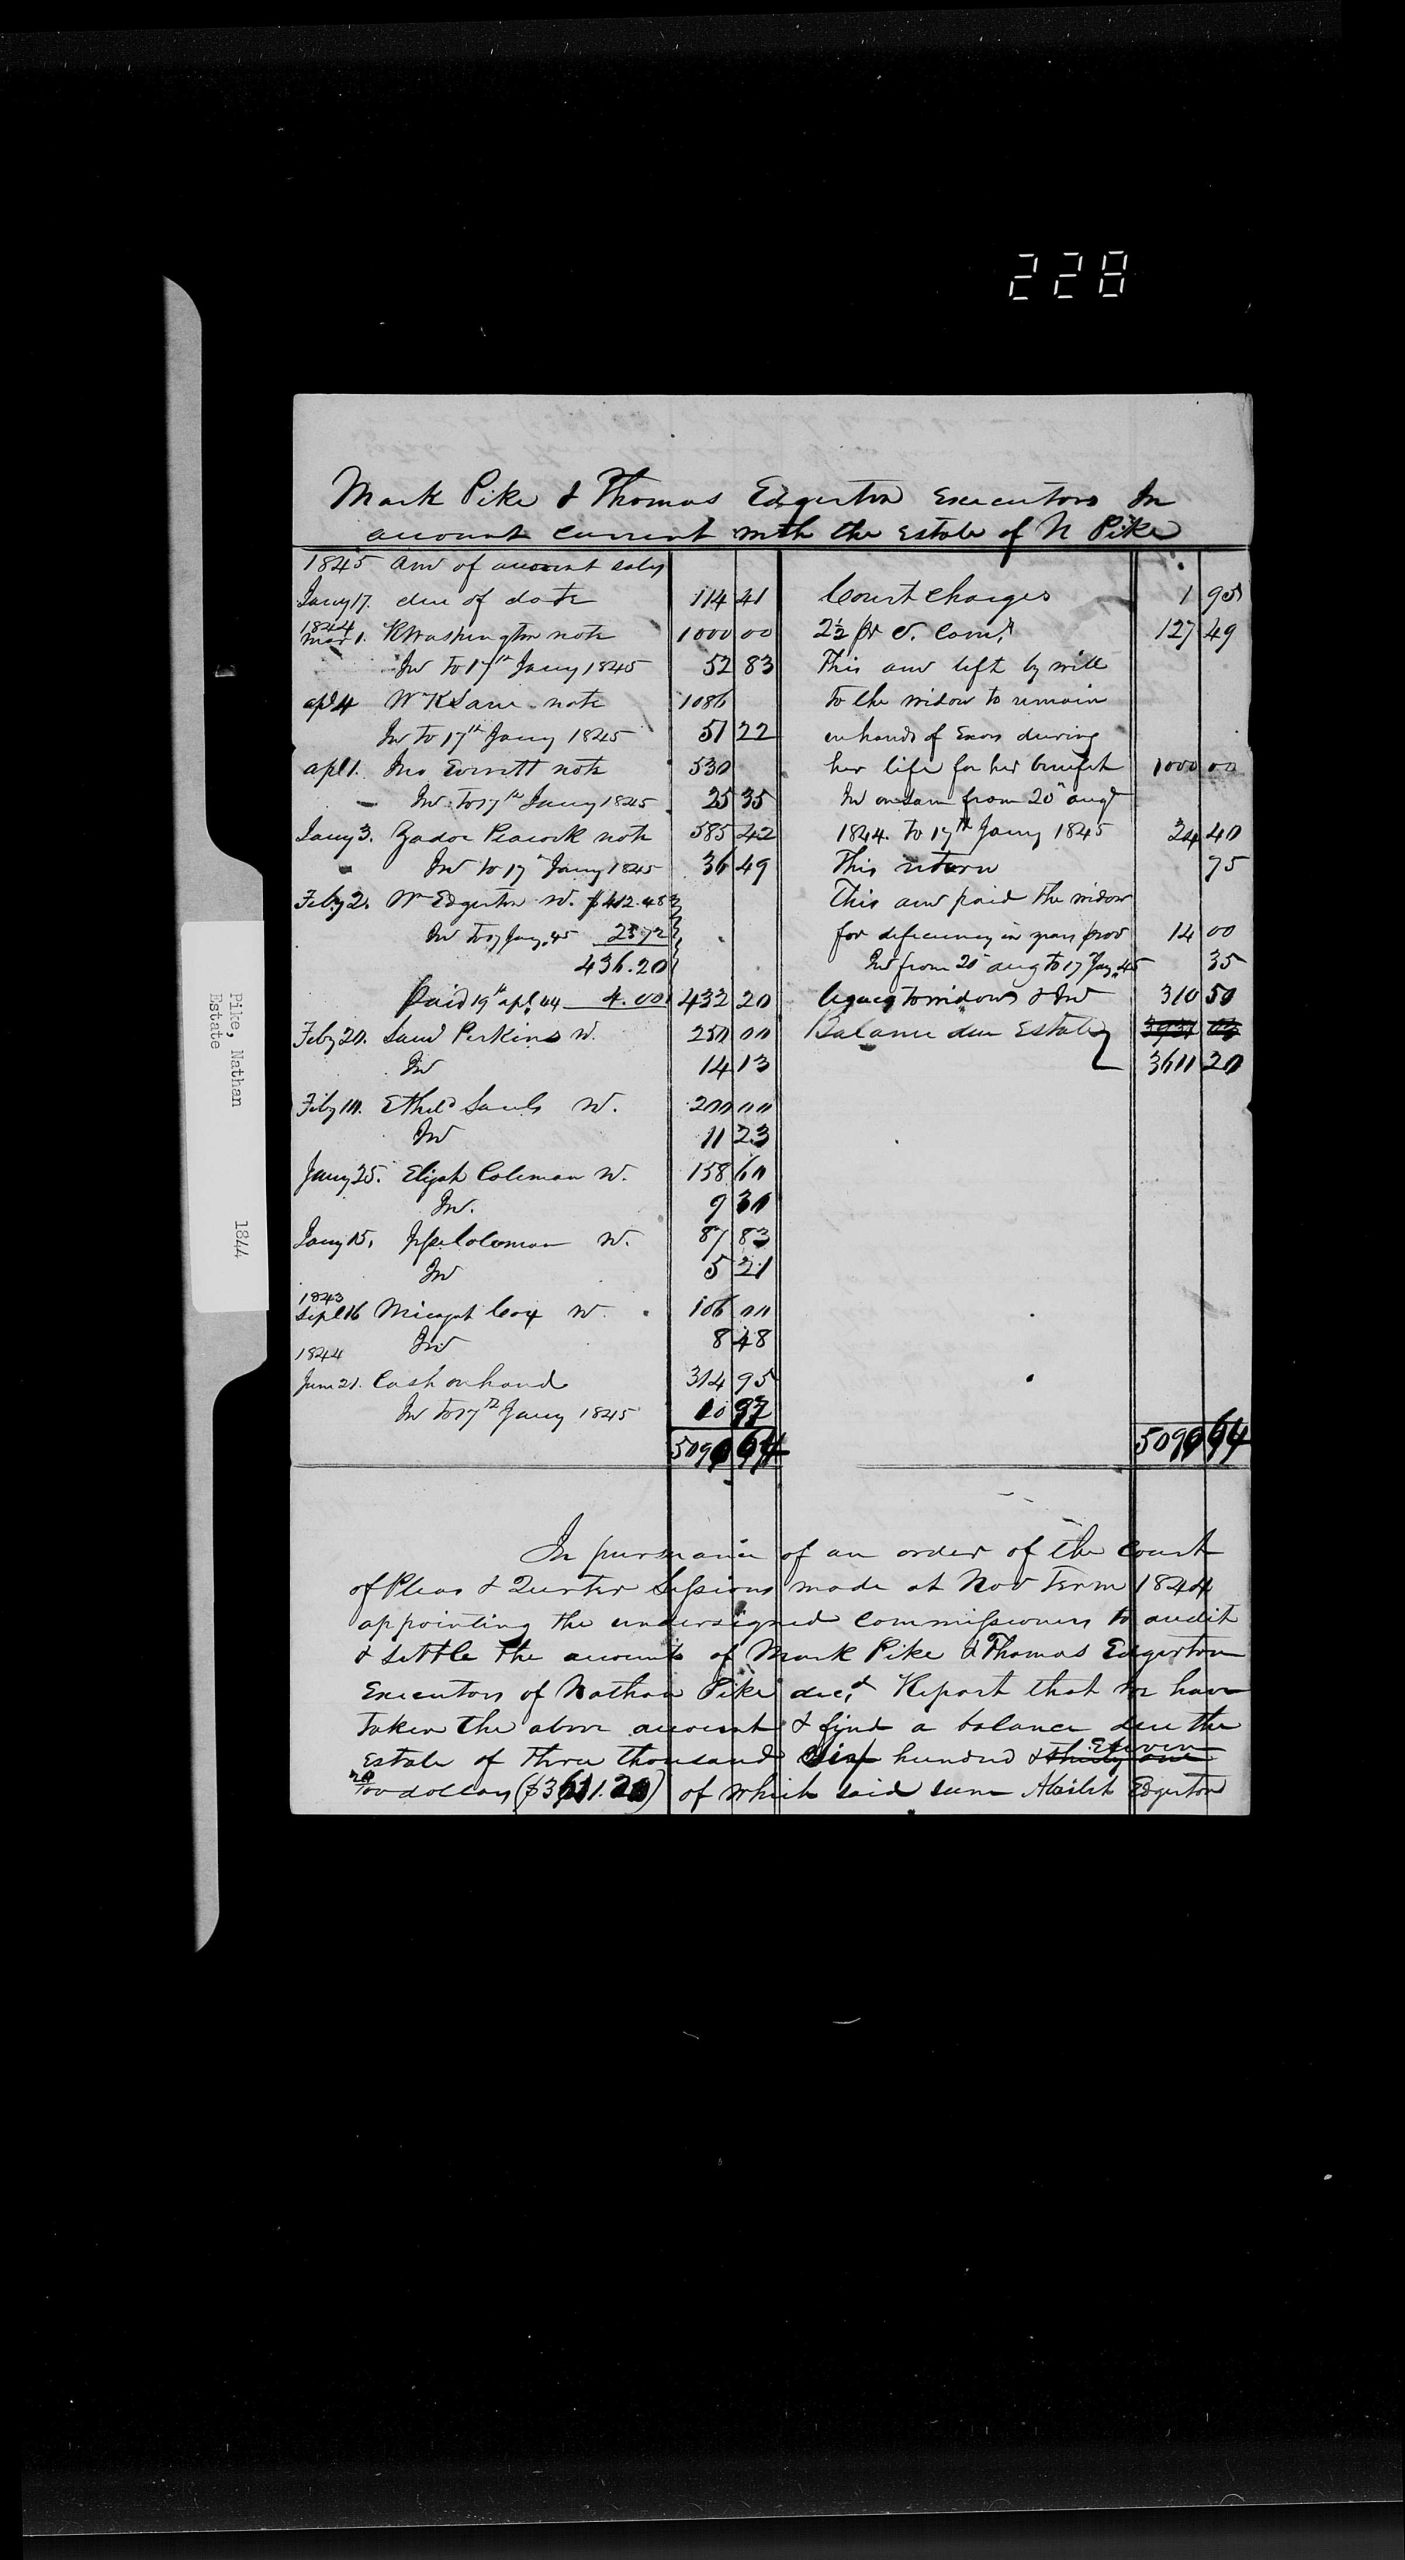 228
Pike, Nathan 1844
Estate
Mark Pike & Thomas Edgerton Executors In
account current with the Estate of N Pike
1845 Am of account sales
Jany 17. due of date 114 41
1844
Mar 1. K Washington note 1000 00
Int to 17th Jany 1845 52 83
apl 4 W K Lane note 1086
Int to 17th Jany 1845 51 22
apl 1. Jno Everett note 530
Int to 17th Jany 1845 25 35
Jany 3. Zadoc Peacock note 585 42
Int to 17th Jany 1845 36 49
Feby 2. Wm Edgerton N. $412.48
Int to 17 Jany. 45 23 72
436.20
Paid 19th apl. 44 4.00 432 20
Feby 20. Saml Perkins N. 250 00
Int 14 13
Feby 10. Etheld Sauls N. 200 00
Int 11 23
Jany 25. Elijah Coleman N. 158 60
Int. 9 30
Jany 15. Jesse Coleman N. 87 83
Int 5 21
1843
Sept 16 Micajah Cox N. 106 00
Int 8 48
1844
June 21. Cash on hand 314 95
Int to 17th Jany 1845 10 97
5090 64
Court Charges 1 95
2½ pr C. Coms 127 49
This am left by will
to the widow to remain
in hands of Exors during
her life for her benefit 1000 00
Int on same from 20th augt
1844. to 17th Jany 1845 24 40
This return 75
This am paid the widow
for deficiency in years prov 14 00
Int from 20th aug to 17 Jay. 45 35
legacy to widow & Int 310 50
Balance due Estate
3611 20
5090 64
In pursuance of an order of the Court
of Pleas & Qurter Sessions made at Nov Term 1844
appointing the undersigned Commissioners to audit
& settle the accounts of Mark Pike & Thomas Edgerton
Executors of Nathan Pike decd Report that we have
taken the above account & find a balance due the
Eleven
Estate of three thousand six hundred & thirty one
20/100 dollars ($3611.20) of which said sum Edgerton